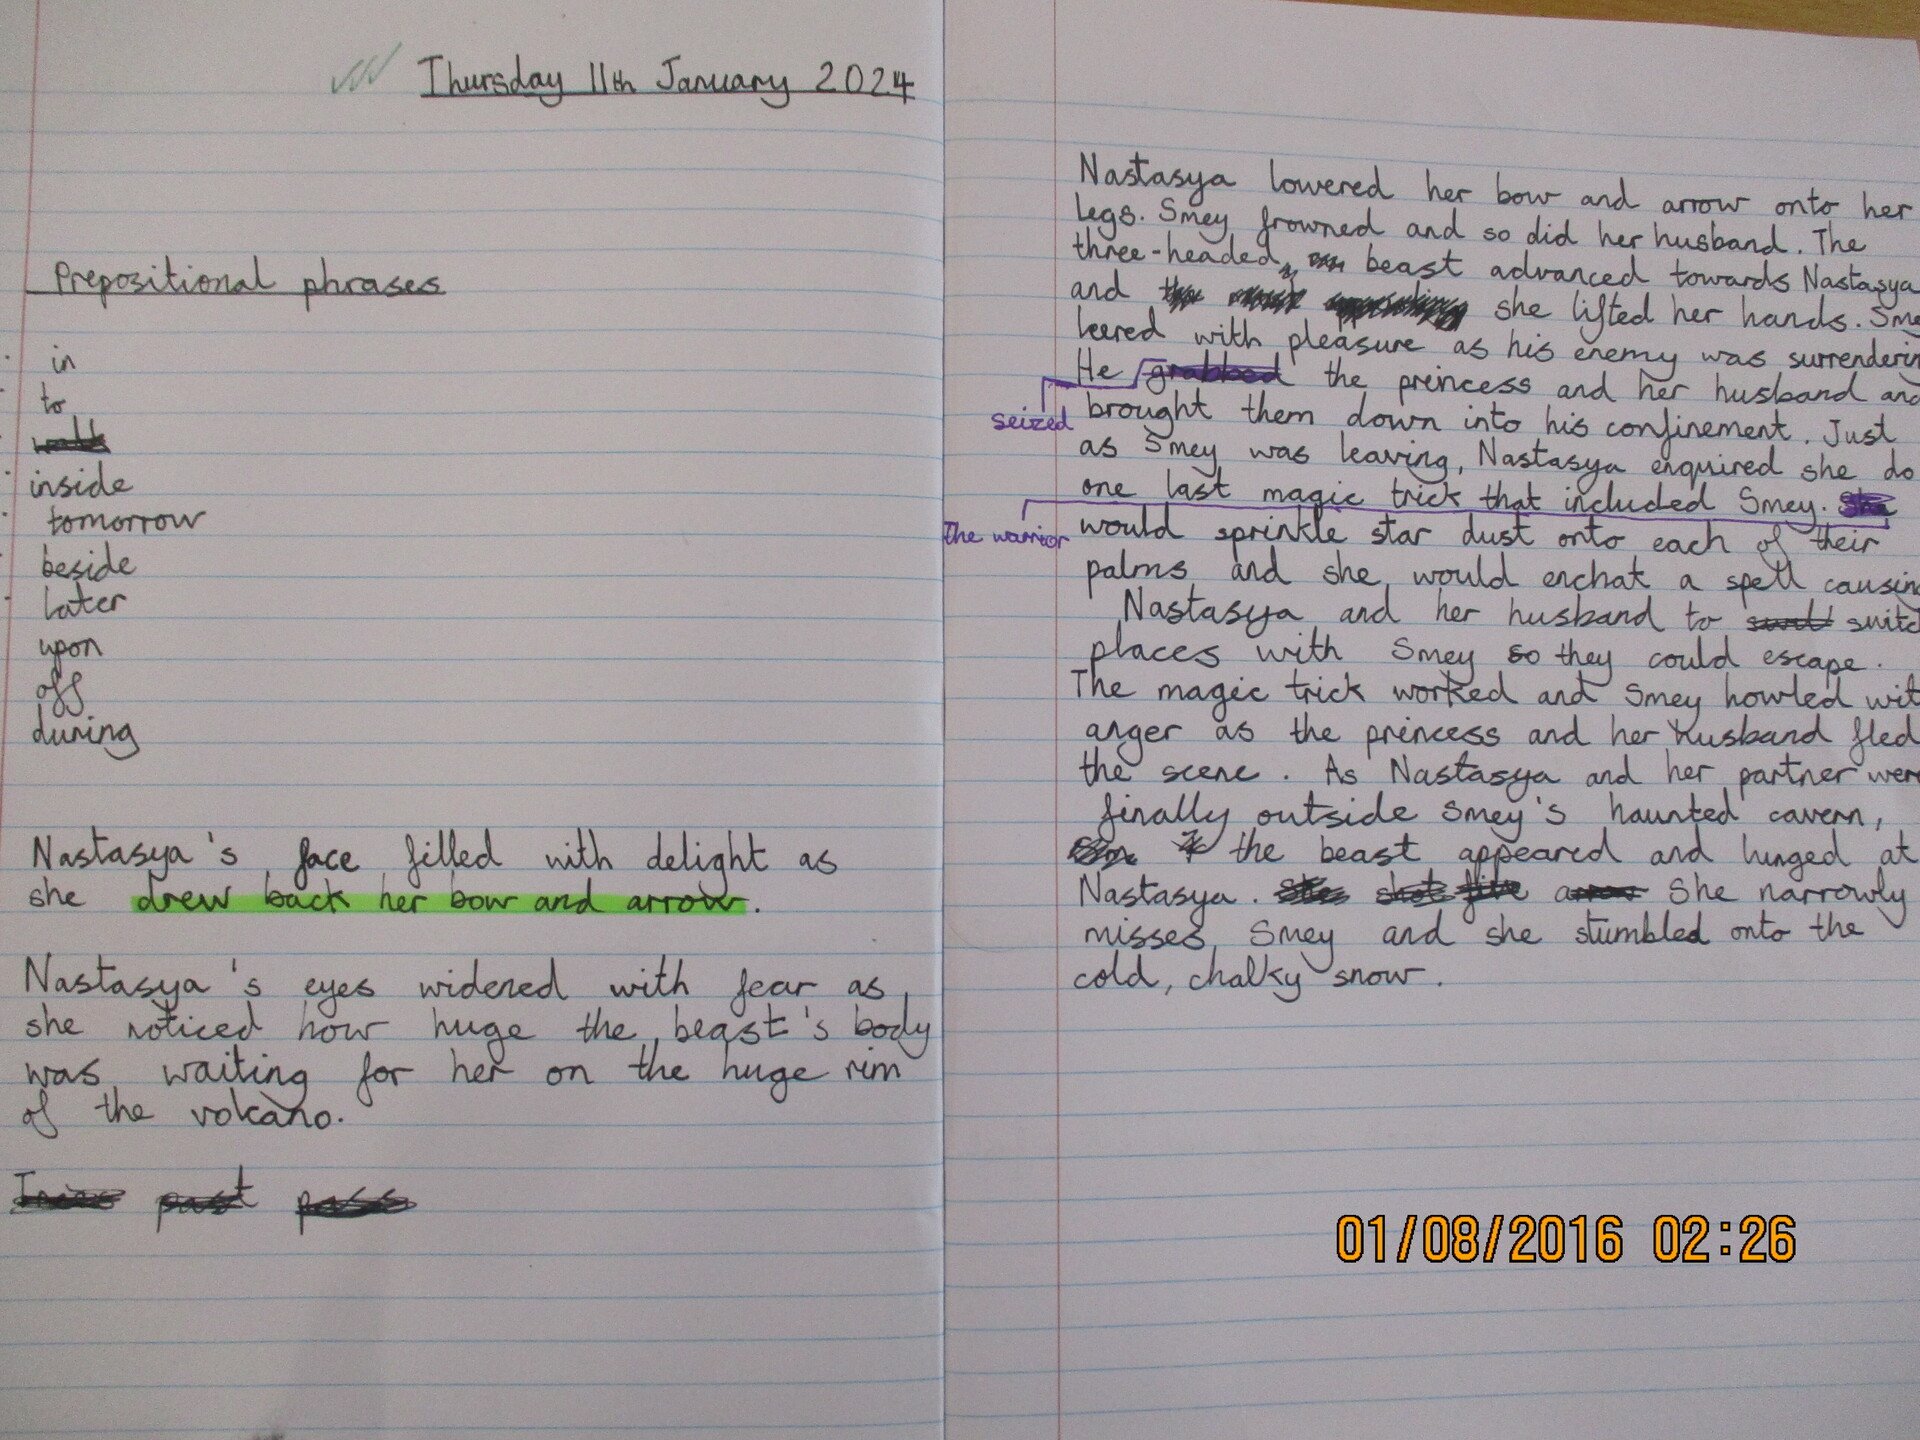 Thursday 11th January 2024
Prepositional phrases
in
to
inside
tomorrow
beside
later
upon
off
during
Nastasya's face filled with delight as
she drew back her bow and arrow.
Nastasya's eyes widened with fear as
she noticed how huge the beast's body
was waiting for her on the huge rim
of the volcano.
past pass
Nastasya lowered her bow and arrow onto her
legs. Smey frowned and so did her husband. The
three-headed, beast advanced towards Nastasya
and she lifted her hands. Sme
leered with pleasure as his enemy was surrenderin
He grabbed the princess and her husband and
seized
brought them down into his confinement. Just
as Smey was leaving, Nastasya enquired she do
one last magic trick that included Smey. She
The warrior
would sprinkle star dust onto each of their
palms and she would enchat a spell causing
Nastasya and her husband to suitc
places with Smey so they could escape.
The magic trick worked and Smey howled wit
anger as the princess and her husband fled
the scene. As Nastasya and her partner were
finally outside Smey's haunted cavern,
the beast appeared and lunged at
Nastasya. She shot five arrow She narrowly
misses Smey and she stumbled onto the
cold, chalky snow.
01/08/2016 02:26